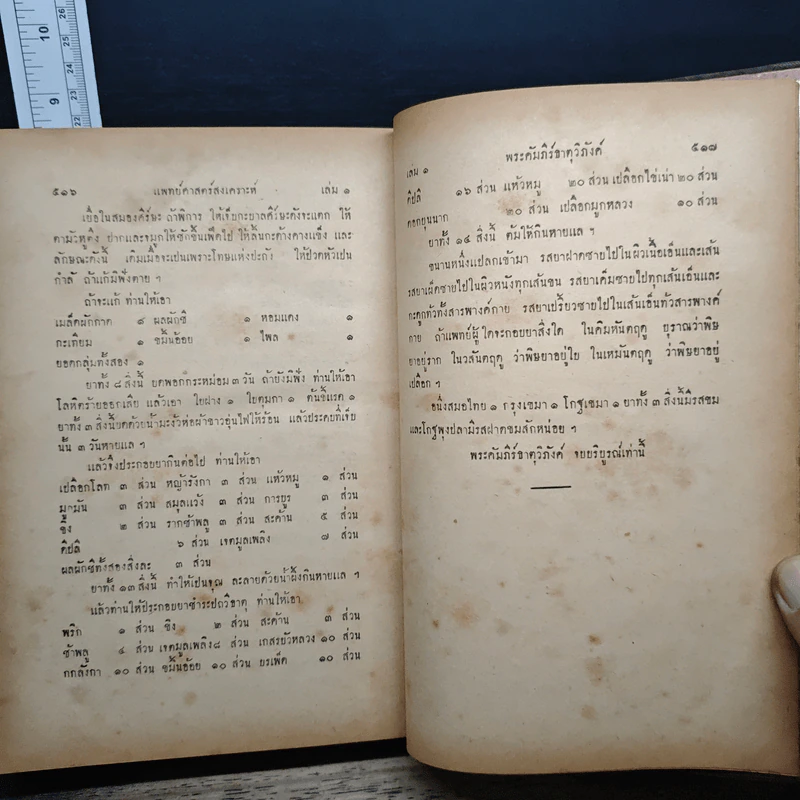 10
9
26
25
24
23
22
๕๑๖ แพทย์ศาสตร์สงเคราะห์ เล่ม ๑
เยื่อในสมองศีรษะ ถ้าพิการ ให้เจ็บกะบาลศีรษะดังจะแตก ให้
ตามัวหูตึง ปากและจมูกให้ชักขึ้นเฟ็ดไป ให้ลิ้นกะด้างคางแข็ง และ
ลักษณะดังนี้ เดิมเมื่อจะเป็นเพราะโทษแห่งปะกัง ให้ปวดหัวเป็น
กำลัง ถ้าแก้มิฟังตาย ฯ
ถ้าจะแก้ ท่านให้เอา
เมล็ดผักกาด ๘ ผลผักชี ๑ หอมแดง ๑
กะเทียม ๑ ขมิ้นอ้อย ๑ ไพล ๑
ยอดกลุ่มทั้งสอง ๑
ยาทั้ง ๘ สิ่งนี้ บดพอกกระหม่อม ๓ วัน ถ้ายังมิฟัง ท่านให้เอา
โลหิตร้ายออกเสีย แล้วเอา ใบฝาง ๑ ใบคุมกา ๑ ดันขี้แรด ๑
ยาทั้ง ๓ สิ่งนี้บดด้วยน้ำมะงั่วห่อผ้าขาวอุ่นไฟให้ร้อน แล้วประคบที่เจ็บ
นั้น ๓ วันหายแล ฯ
แล้วจึงประกอบยากินต่อไป ท่านให้เอา
เปลือกโลท ๓ ส่วน หญ้ารังกา ๓ ส่วน แห้วหมู ๑ ส่วน
มูกมัน ๓ ส่วน สมุลแว้ง ๓ ส่วน การบูร ๓ ส่วน
ขิง ๒ ส่วน รากช้าพลู ๓ ส่วน สะค้าน ๕ ส่วน
ดีปลี ๖ ส่วน เจตมูลเพลิง ๗ ส่วน
ผลผักชีทั้งสองสิ่งละ ๓ ส่วน
ยาทั้ง ๑๓ สิ่งนี้ ทำให้เป็นจุณ ละลายด้วยน้ำผึ้งกินหายแล ฯ
แล้วท่านให้ประกอบยาชำระปถวีธาตุ ท่านให้เอา
พริก ๑ ส่วน ขิง ๒ ส่วน สะค้าน ๓ ส่วน
ช้าพลู ๔ ส่วน เจตมูลเพลิง ๘ ส่วน เกสรบัวหลวง ๑๐ ส่วน
กกลังกา ๑๐ ส่วน ขมิ้นอ้อย ๑๐ ส่วน บรเพ็ด ๑๐ ส่วน
เล่ม ๑ พระคัมภีร์ธาตุวิภังค์ ๕๑๗
ดีปลี ๑๖ ส่วน แห้วหมู ๒๐ ส่วน เปลือกไข่เน่า ๒๐ ส่วน
ดอกบุนนาก ๒๐ ส่วน เปลือกมูกหลวง ๑๐ ส่วน
ยาทั้ง ๑๔ สิ่งนี้ ต้มให้กินหายแล ฯ
ขนานหนึ่งแปลกเข้ามา รสยาฝาดซาบไปในผิวเนื้อเอ็นและเส้น
รสยาเผ็ดซาบไปในผิวหนังทุกเส้นขน รสยาเค็มซาบไปทุกเส้นเอ็นและ
กะดูกทั่วทั้งสารพางค์กาย รสยาเปรี้ยวซาบไปในเส้นเอ็นทั่วสารพางค์
กาย ถ้าแพทย์ผู้ใดจะกอบยาสิ่งใด ในคิมหันตฤดู บุราณว่าพิษ
ยาอยู่ราก ในวสันตฤดู ว่าพิษยาอยู่ใบ ในเหมันตฤดู ว่าพิษยาอยู่
เปลือก ฯ
อนึ่งสมอไทย ๑ กรุงเขมา ๑ โกฐเขมา ๑ ยาทั้ง ๓ สิ่งนี้มีรสขม
และโกฐพุงปลามีรสฝาดขมสักหน่อย ฯ
พระคัมภีร์ธาตุวิภังค์ จบบริบูรณ์เท่านี้